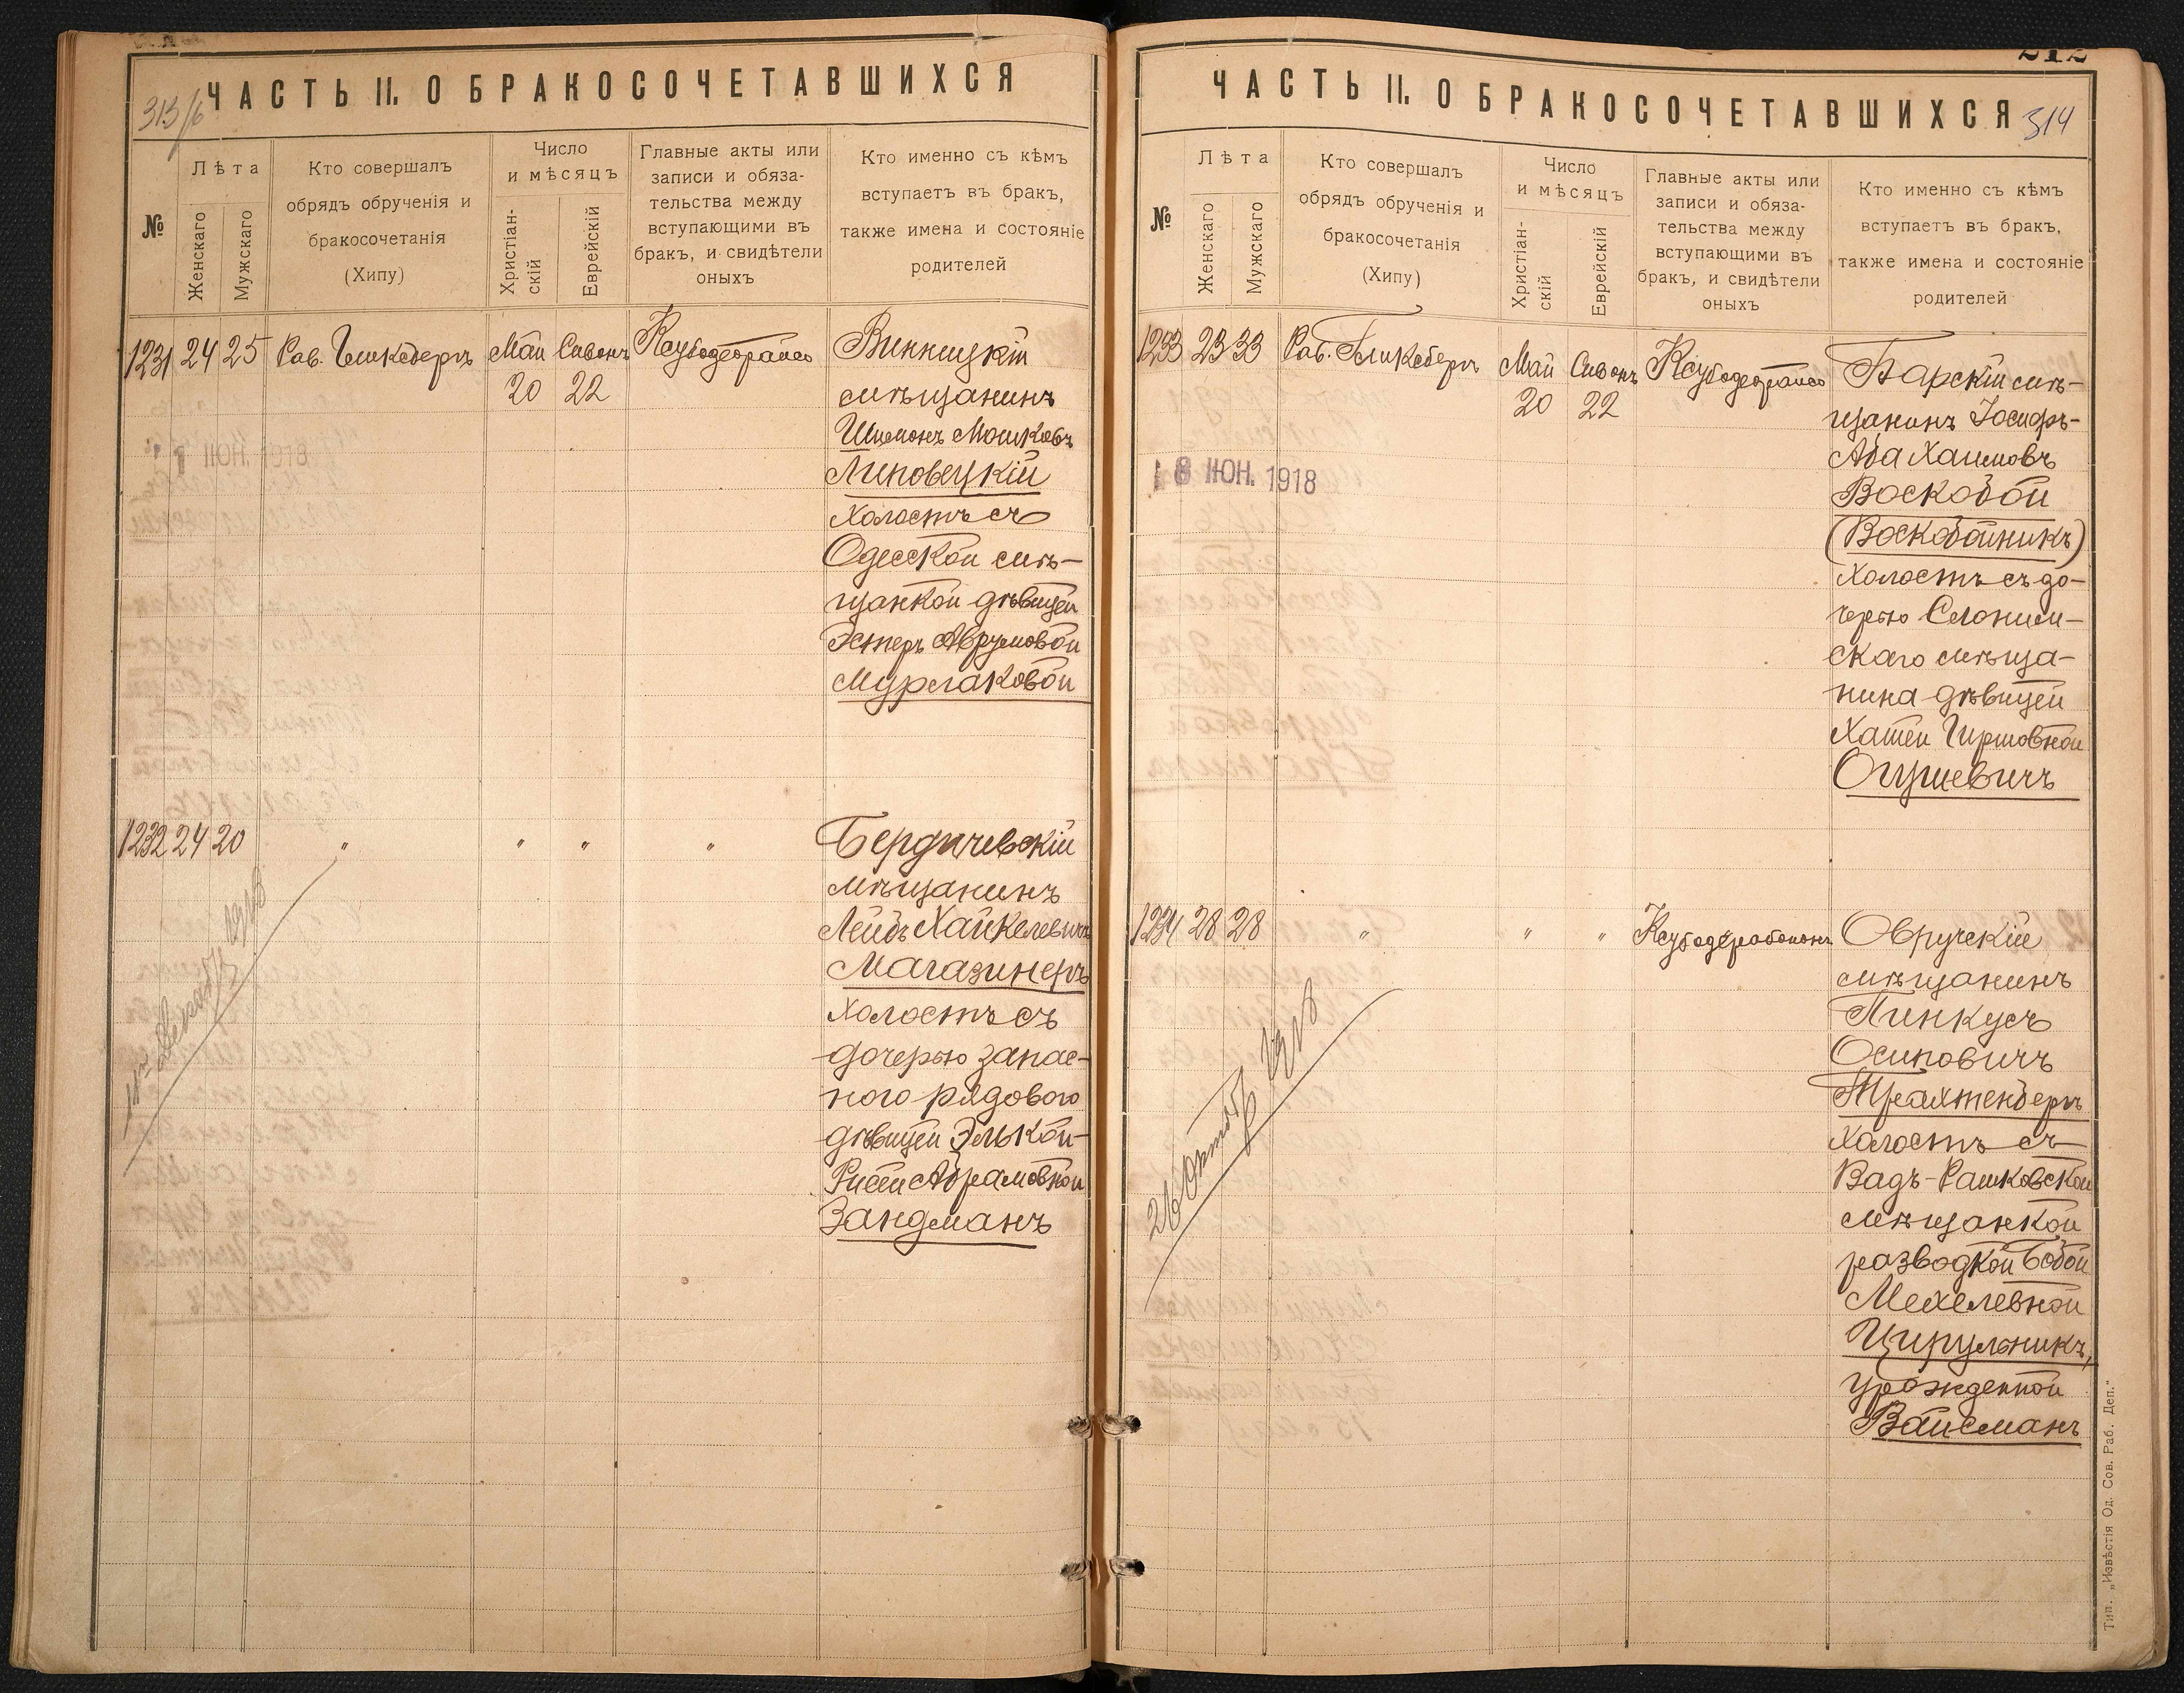 ЧАСТЬ II. О БРАКОСОЧЕТАВШИХСЯ
313/6
№
Лѣта
Женскаго
Мужскаго
Кто совершалъ
обрядъ обрученія и
бракосочетанія
(Хипу)
Число
и мѣсяцъ
Христіан-
скій
Еврейскій
Главные акты или
записи и обяза-
тельства между
вступающими въ
бракъ, и свидѣтели
оныхъ
Кто именно съ кѣмъ
вступаетъ въ бракъ,
также имена и состояніе
родителей
1231 24 25 Рав. Гликсбергъ Май Сивонъ Ксубодеорайсо
20 22
Винницкій
мѣщанинъ
Шимонъ Мошковъ
Липовецкій
холостъ съ
Одесской мѣ-
щанкой дѣвицей
Эстеръ Аврумовой
Мурлаковой
ІЮН. 1918
1232 24 20 " " " "
Бердичевскій
мѣщанинъ
Лейбъ Хайкелевичъ
Магазинеръ
холостъ съ
дочерью запас-
ного рядового
дѣвицей Элькой-
Рисей Абрамовной
Зандманъ
1918
ЧАСТЬ II. О БРАКОСОЧЕТАВШИХСЯ
314
№
Лѣта
Женскаго
Мужскаго
Кто совершалъ
обрядъ обрученія и
бракосочетанія
(Хипу)
Число
и мѣсяцъ
Христіан-
скій
Еврейскій
Главные акты или
записи и обяза-
тельства между
вступающими въ
бракъ, и свидѣтели
оныхъ
Кто именно съ кѣмъ
вступаетъ въ бракъ,
также имена и состояніе
родителей
1233 23 33 Рав. Гликсбергъ Май Сивонъ Ксубодеорайсо
20 22
Барскій мѣ-
щанинъ Іосифъ-
Аба Хаимовъ
Воскобой
(Воскобойникъ)
холостъ съ до-
черью Слоним-
скаго мѣща-
нина дѣвицей
Хашей Гиршовной
Огушевичъ
18 ІЮН. 1918
1234 28 28 " " "
Овручскій
мѣщанинъ
Пинкусъ
Осиповичъ
Трахтенбергъ
холостъ съ
Вадъ-Рашковской
мѣщанкой
разводкой Бобой
Мехелевной
Цирульникъ,
урожденной
Вайсманъ
26 октябр 1918
Тип. „Извѣстія Од. Сов. Раб. Деп."